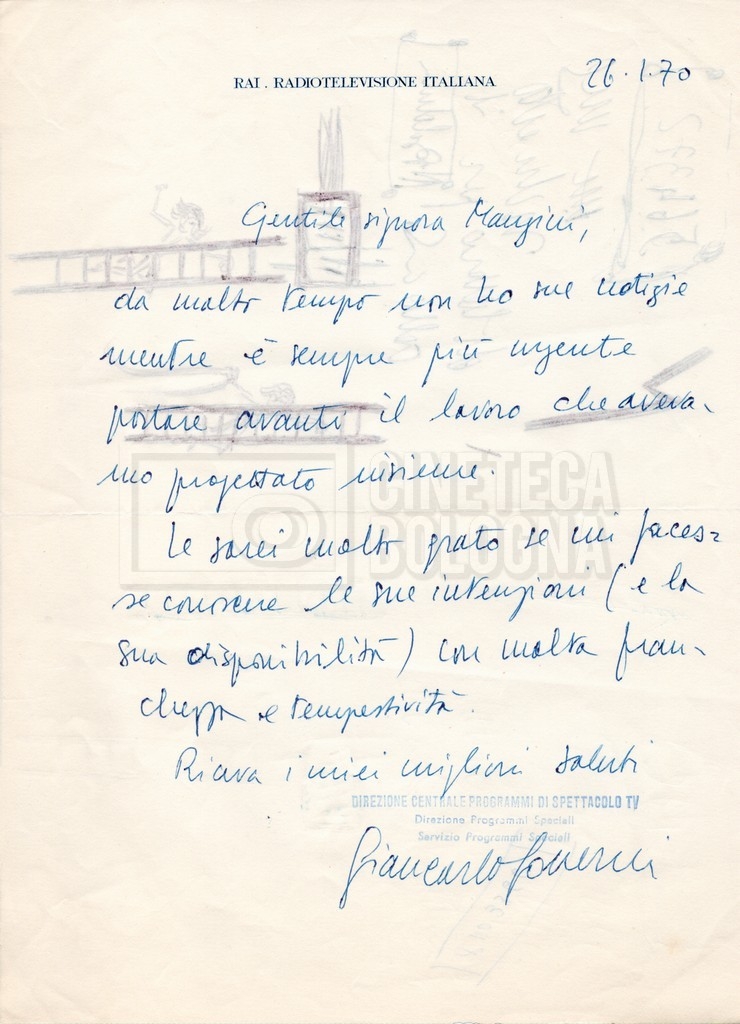 RAI . RADIOTELEVISIONE ITALIANA
26.1.70
Gentile signora Mangini,
da molto tempo non ho sue notizie
mentre è sempre più urgente
portare avanti il lavoro che aveva-
mo progettato insieme.
Le sarei molto grato se mi faces=
se conoscere le sue intenzioni (e la
sua disponibilità) con molta fran-
chezza e tempestività.
Riceva i miei migliori saluti
DIREZIONE CENTRALE PROGRAMMI DI SPETTACOLO TV
Direzione Programmi Speciali
Servizio Programmi Speciali
Giancarlo Governi
CINETECA
BOLOGNA